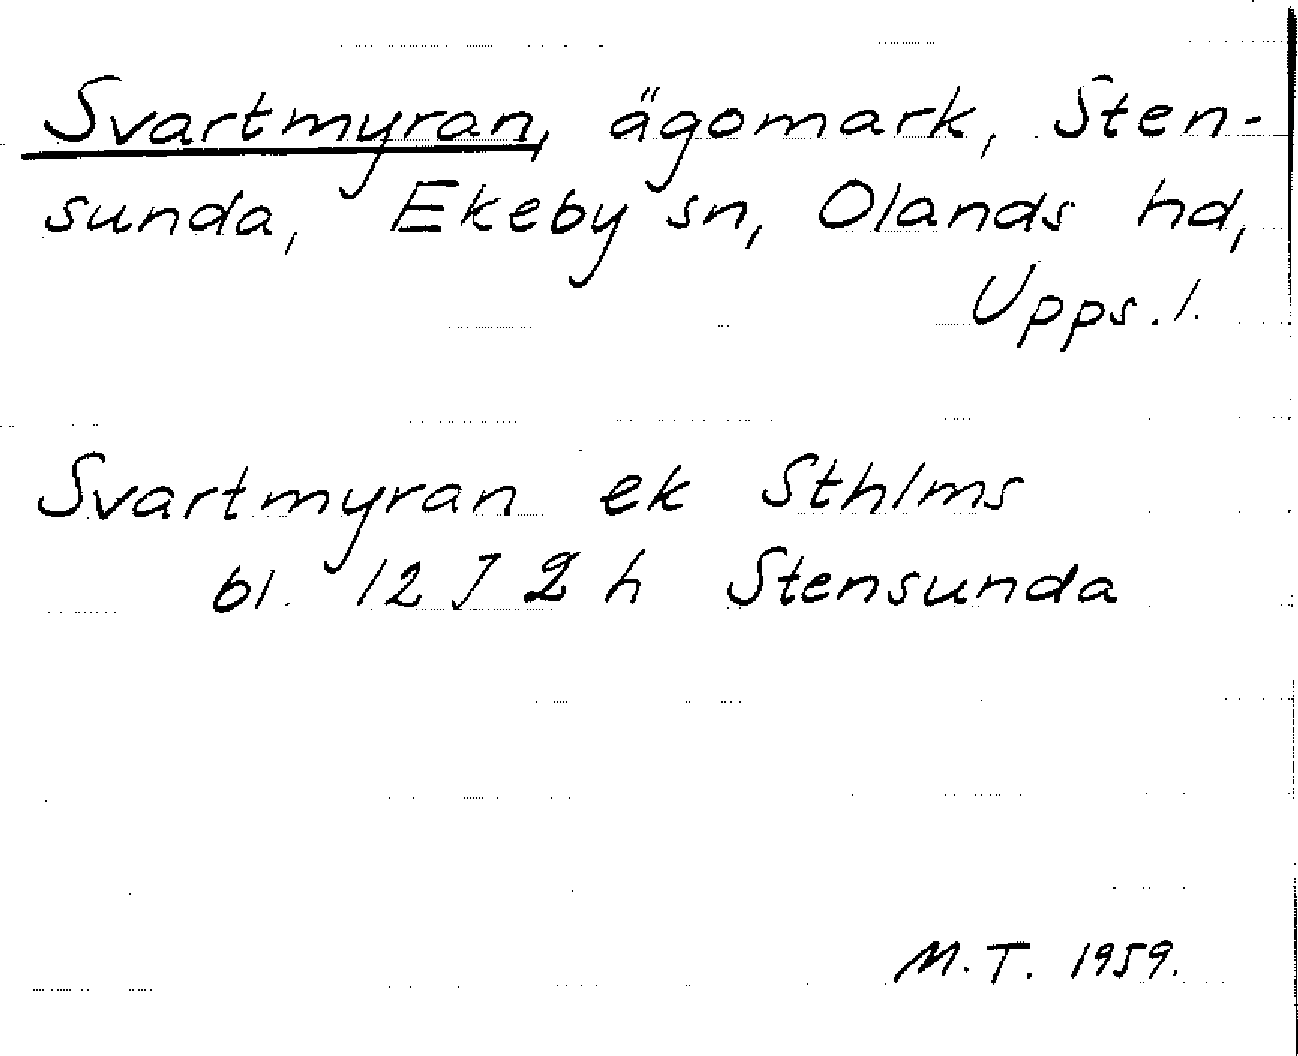 Svartmyran, ägomark, Sten-
sunda, Ekeby sn, Olands hd,
Upps. l.
Svartmyran ek Sthlms
bl. 12 J 2 h Stensunda
M.T. 1959.